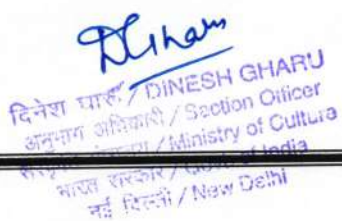 दिनेश घारू / DINESH GHARU
अनुभाग अधिकारी / Section Officer
/ Ministry of Culture
भारत सरकार / Govt. of India
नई दिल्ली / New Delhi